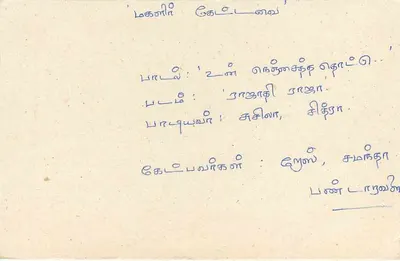 'மகளிர் கேட்டவை'
பாடல்: 'உன் நெஞ்சைத்த தொட்டு..'
படம் : 'ராஜாதி ராஜா.
பாடியவர் : சுசிலா, சித்ரா.
கேட்பவர்கள் : றேஸ், சமந்தா